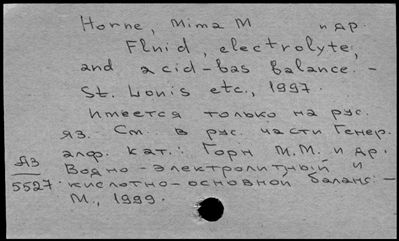 Horne, Mima M и др.
Fluid, electrolyte,
and acid-bas balance. -
St. Louis etc., 1997.
Имеется только на рус.
яз. См. в рус. части Генер.
алф. кат.: Горн М.М. и др.
Яз Водно-электролитный и
5527 кислотно-основной баланс. -
М., 1999.